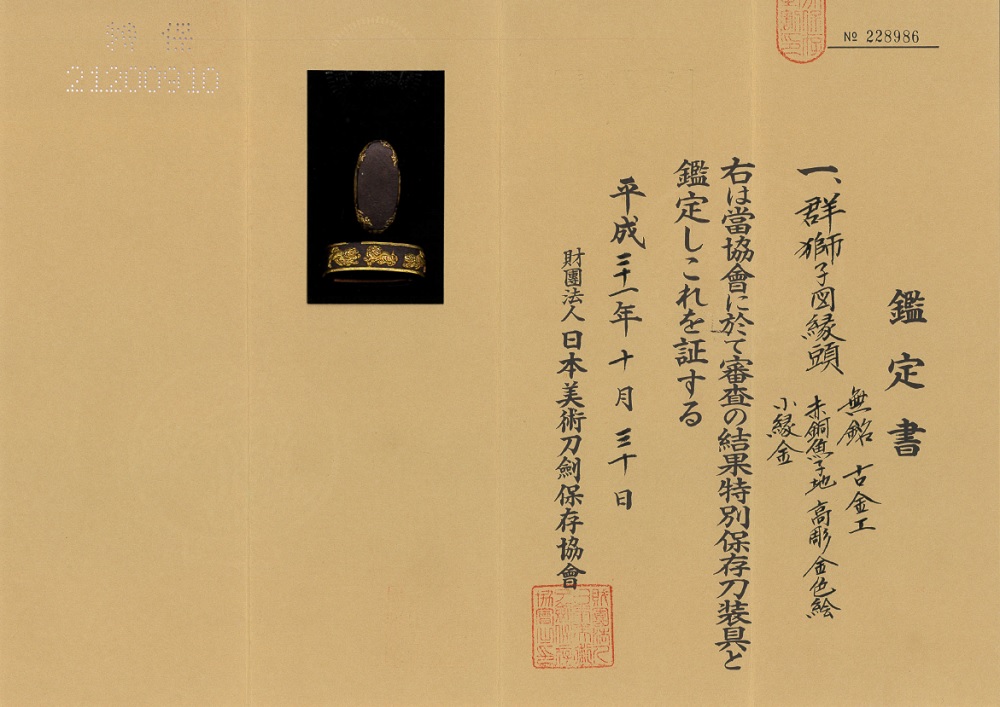 特保
21200910
№ 228986
鑑定書
一、群獅子図縁頭
無銘 古金工
赤銅魚子地 高彫金色絵
小縁金
右は當協會に於て審査の結果特別保存刀装具と
鑑定しこれを証する
平成二十一年十月三十日
財團法人日本美術刀劍保存協會